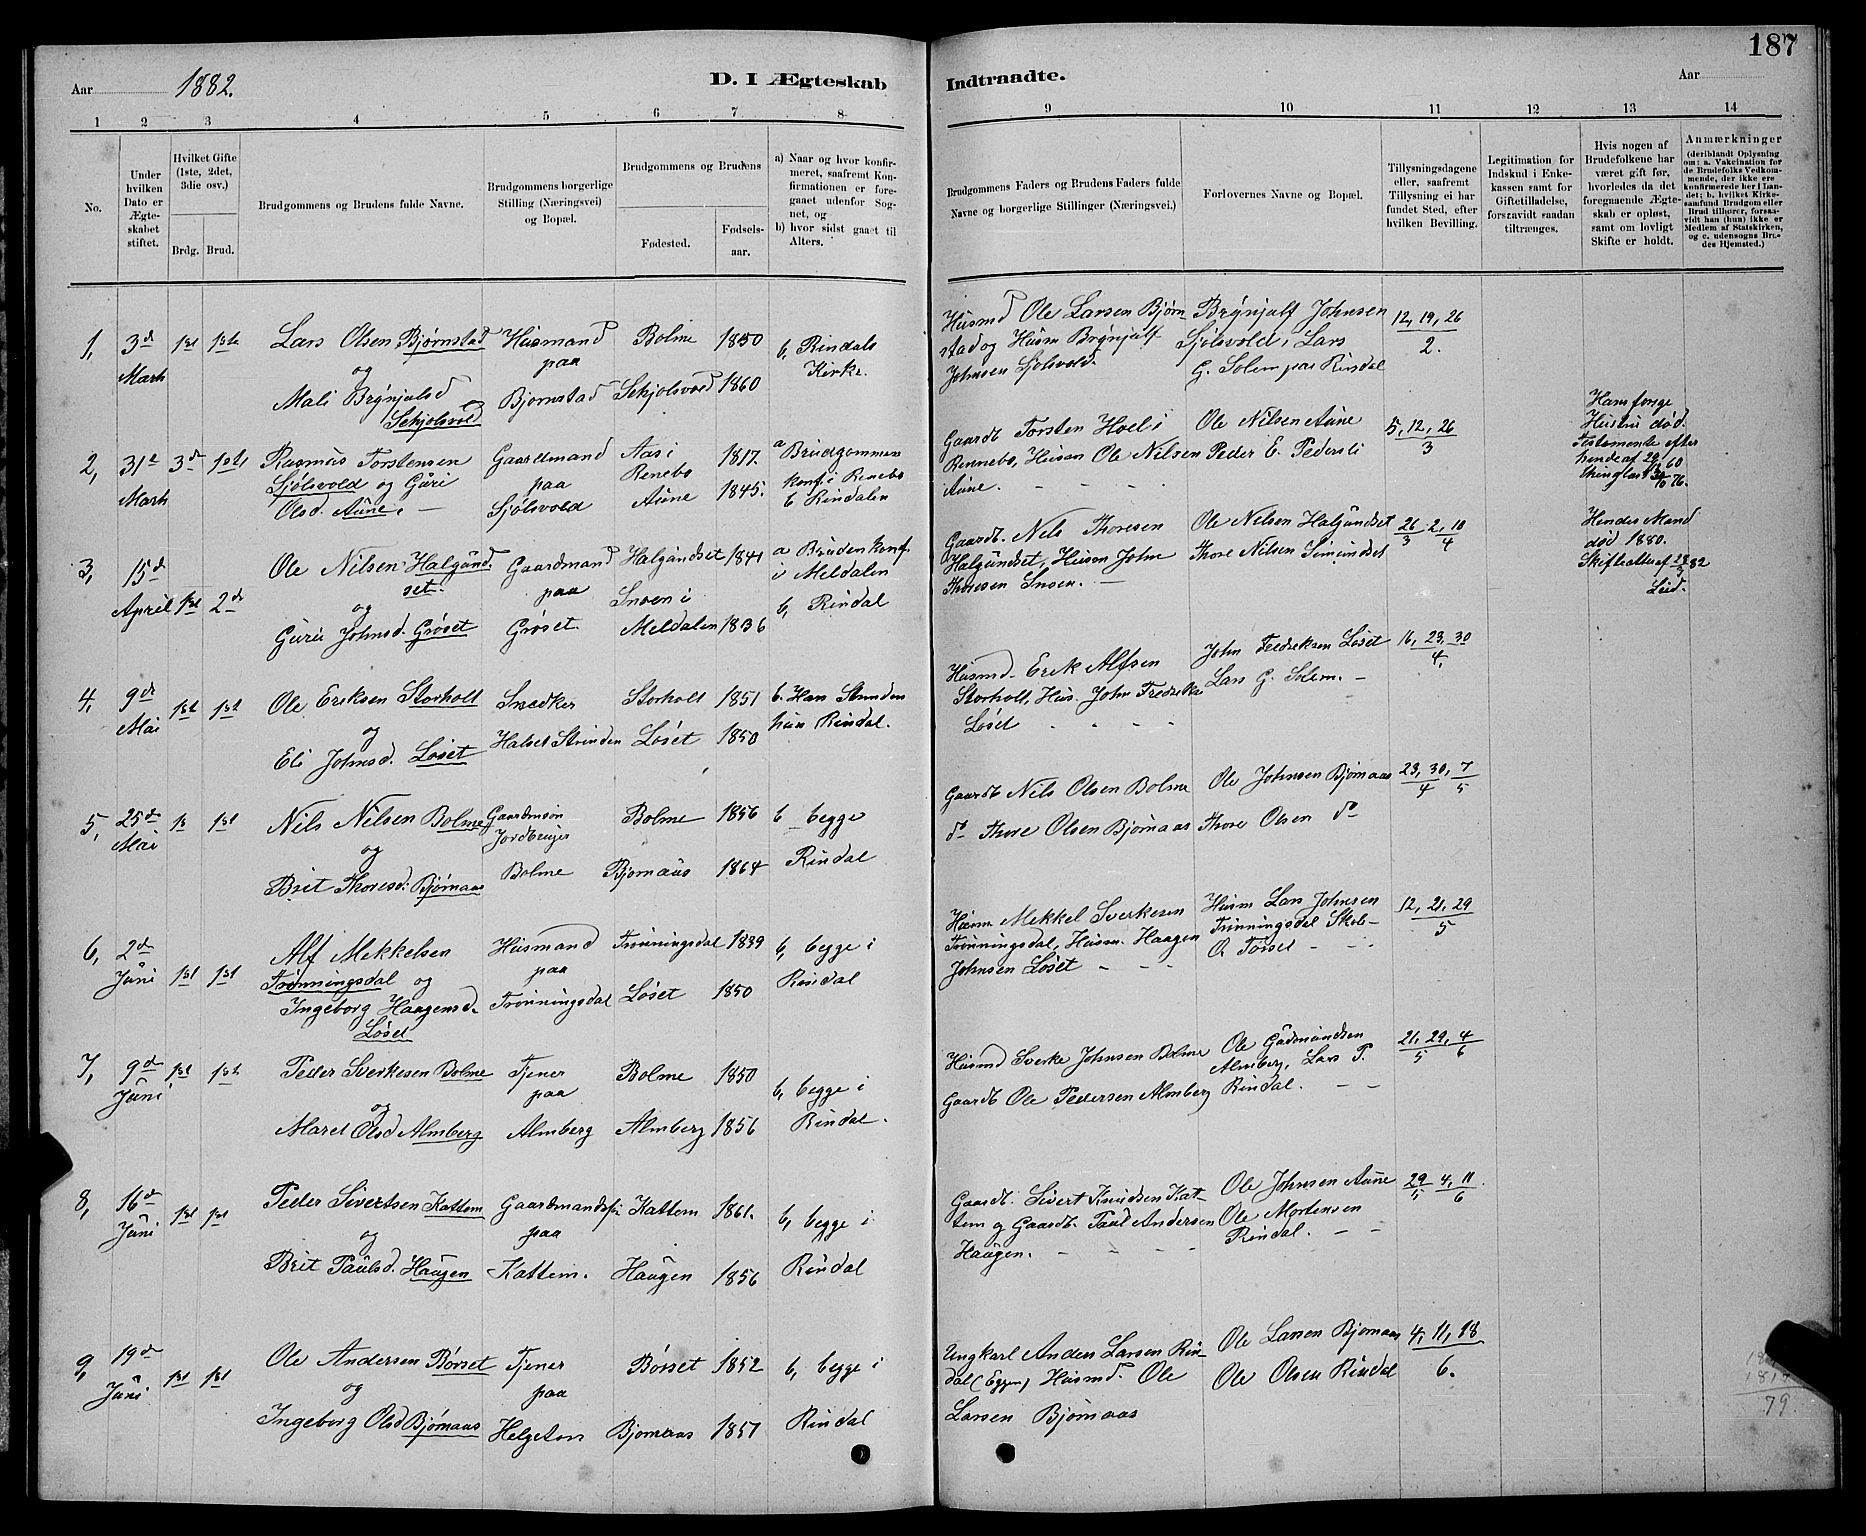 187
Aar 1882. D. I Ægteskab Indtraadte. Aar
1 2 3 4 5 6 7 8 9 10 11 12 13 14
No.
Under hvilken Dato er Ægteskabet stiftet.
Hvilket Gifte (1ste, 2det, 3die osv.)
Brdg. Brud.
Brudgommens og Brudens fulde Navne.
Brudgommens borgerlige Stilling (Næringsvei) og Bopæl.
Brudgommens og Brudens
Fødested. Fødselsaar.
a) Naar og hvor konfirmeret, saafremt Konfirmationen er foregaaet udenfor Sognet, og
b) hvor sidst gaaet til Alters.
Brudgommens Faders og Brudens Faders fulde Navne og borgerlige Stillinger (Næringsvei.)
Forlovernes Navne og Bopæl.
Tillysningsdagene eller, saafremt Tillysning ei har fundet Sted, efter hvilken Bevilling.
Legitimation for Indskud i Enkekassen samt for Giftetilladelse, forsaavidt saadan tiltrænges.
Hvis nogen af Brudefolkene har været gift før, hvorledes da det foregaaende Ægteskab er opløst, samt om lovligt Skifte er holdt.
Anmærkninger (deriblandt Oplysning om: a. Vakcination for de Brudefolks Vedkommende, der ikke ere konfirmerede her i Landet; b. hvilket Kirkesamfund Brudgom eller Brud tilhører, forsaavidt han (hun) ikke er Medlem af Statskirken, og c. udensogns Brudes Hjemsted.)
1, 3d Marh 1st 1ste
Lars Olsen Bjørnstad
og
Mali Brynjulsd
Sekjolsvold
Husmand
paa
Bjornstad
Bolme 1850
Sekjolsvold 1860
b, Rindals
Kirke.
Husmd Ole Larsen Bjørn
stad og Husm Brynjulf
Johnsen Sjølsvold.
Brynjulf Johnsen
Sjölsvold, Lars
G. Solem paa Rindal
12, 19, 26
2.
2, 31te Marh 3d 1ste
Rasmus Torstensen
Sjölsvold og Guri
Olsd. Aune. —
Gaardmand
paa
Sjölsvold
Aas i
Renebo 1817.
Aune 1845.
a Brudgommen
konf. i Renebo
b Rindalen
Gaardb Torsten Hoel i
Rennebo, Husm Ole Nilsen
Aune.
Ole Nilsen Aune
Peder E. Pedersli
5, 12, 26
3
Hans forige
Hustru död.
Testamente efter
hende af 29/12 60
3, 15d April 1st 2d
Ole Nilsen Halgund-
set.
og
Guru Johnsd. Gröset
Gaardmand
paa
Gröset.
Halgundset 1841
Snoen i
Meldalen 1836
a Bruden konf.
i Meldalen
b, Rindal
Gaardb. Nils Thoresen
Halgundset, Husm John
Thoresen Snoen. —
Ole Nilsen Halgundset
Thore Nilsen Simundset
26/3 2, 10/4
Hendes Mand
død 1880.
4, 9de Mai 1st 1st
Ole Eriksen Storholt
og
Eli Johnsd. Löset
Snedker
Halset Strinden
Storholt 1851
Löset 1850
b. Han Strinden
hun Rindal.
Husmd. Erik Alfsen
Storholt, Hus. John Fredrikse
Löset
John Fredriksen Löset
Lars G. Solem. —
16, 23, 30
4,
5, 25de Mai 1st 1st
Nils Nilsen Bolme
og
Brit Thoresd. Bjömaas
Gaardmsön
Jordbruger
Bolme
Bolme 1856
Bjornaas 1864
b begge
Rindal
Gaardb Nils Olsen Bolme
do Thore Olsen Bjömaas
Ole Johnsen Bjømaas
Thore Olsen do
23, 30, 7
4 5
6, 2d Juni 1st 1st
Alf Mekkelsen
Trønningsdal og
Ingeborg Haagensd.
Löset
Husmand
paa
Trönningsdal
Trönningsdal 1839
Löset 1850
b, begge i
Rindal
Husm. Mekkel Sverkesen
Trönningsdal, Husm. Haagen
Johnsen Löset
Husm Lars Johnsen
Trönningsdal
O Torset
12, 21, 29
5
7, 9d Juni 1st 1st
Peder Sverkesen Bolme
og
Maret Olsd Almberg
Tjener
paa
Almberg
Bolme 1850
Almberg 1856
b, begge i
Rindal.
Husmd Sverke Johnsen Bolme
Gaardb Ole Pedersen Almberg
Ole Gudmundsen
Almberg, Lars P.
Rindal. — —
21, 29, 4
5 6
8, 16d Juni 1st 1st
Peder Sivertsen Kattem
og
Brit Paulsd. Haugen
Gaardmands
paa
Kattem.
Kattem 1861.
Haugen 1856
b, begge i
Rindal
Gaardb. Sivert Knudsen Kat-
tem og Gaardb. Paul Andersen
Haugen.
Ole Johnsen Aune
Ole Mortensen
Rindal. — —
29 4, 11
5 6
9, 19d Juni 1st 1st
Ole Andersen Börset
og
Ingeborg Olsd Bjömaas
Tjener
paa
Helgeton
Börset 1852
Bjomaas 1857
b, begge i
Rindal
Ungkarl Anders Larsen Rin-
dal (Eggen) Husmd. Ole
Larsen Bjömaas
Ole Larsen Bjomaas
Ole Olsen Rindal
4, 11, 18
6.
79.